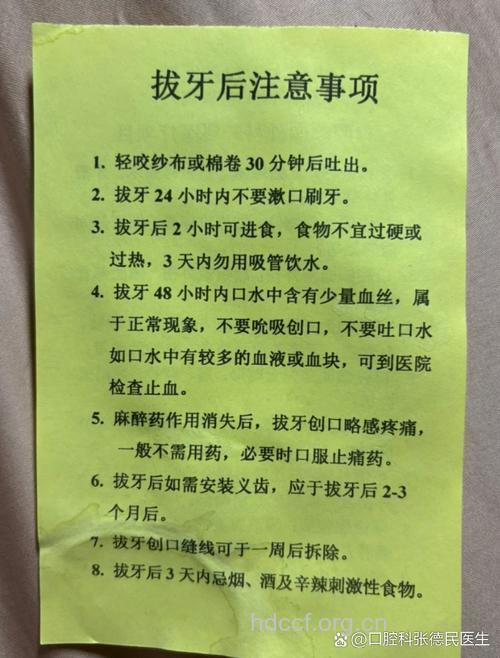 拔牙后注意事项
1. 轻咬纱布或棉卷 30 分钟后吐出。
2. 拔牙 24 小时内不要漱口刷牙。
3. 拔牙后 2 小时可进食，食物不宜过硬或
过热，3 天内勿用吸管饮水。
4. 拔牙 48 小时内口水中含有少量血丝，属
于正常现象，不要吮吸创口，不要吐口水
如口水中有较多的血液或血块，可到医院
检查止血。
5. 麻醉药作用消失后，拔牙创口略感疼痛，
一般不需用药，必要时口服止痛药。
6. 拔牙后如需安装义齿，应于拔牙后 2-3
个月后。
7. 拔牙创口缝线可于一周后拆除。
8. 拔牙后 3 天内忌烟、酒及辛辣刺激性食物。
hdccf.org.cn
口腔科张德民医生